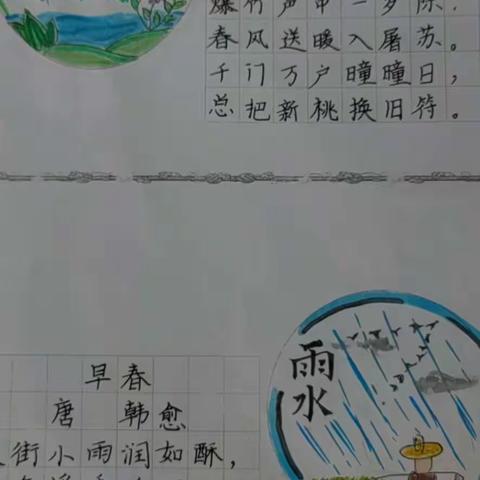 爆竹声中一岁除，
春风送暖入屠苏。
千门万户曈曈日，
总把新桃换旧符。
雨水
早春
唐 韩愈
街小雨润如酥，